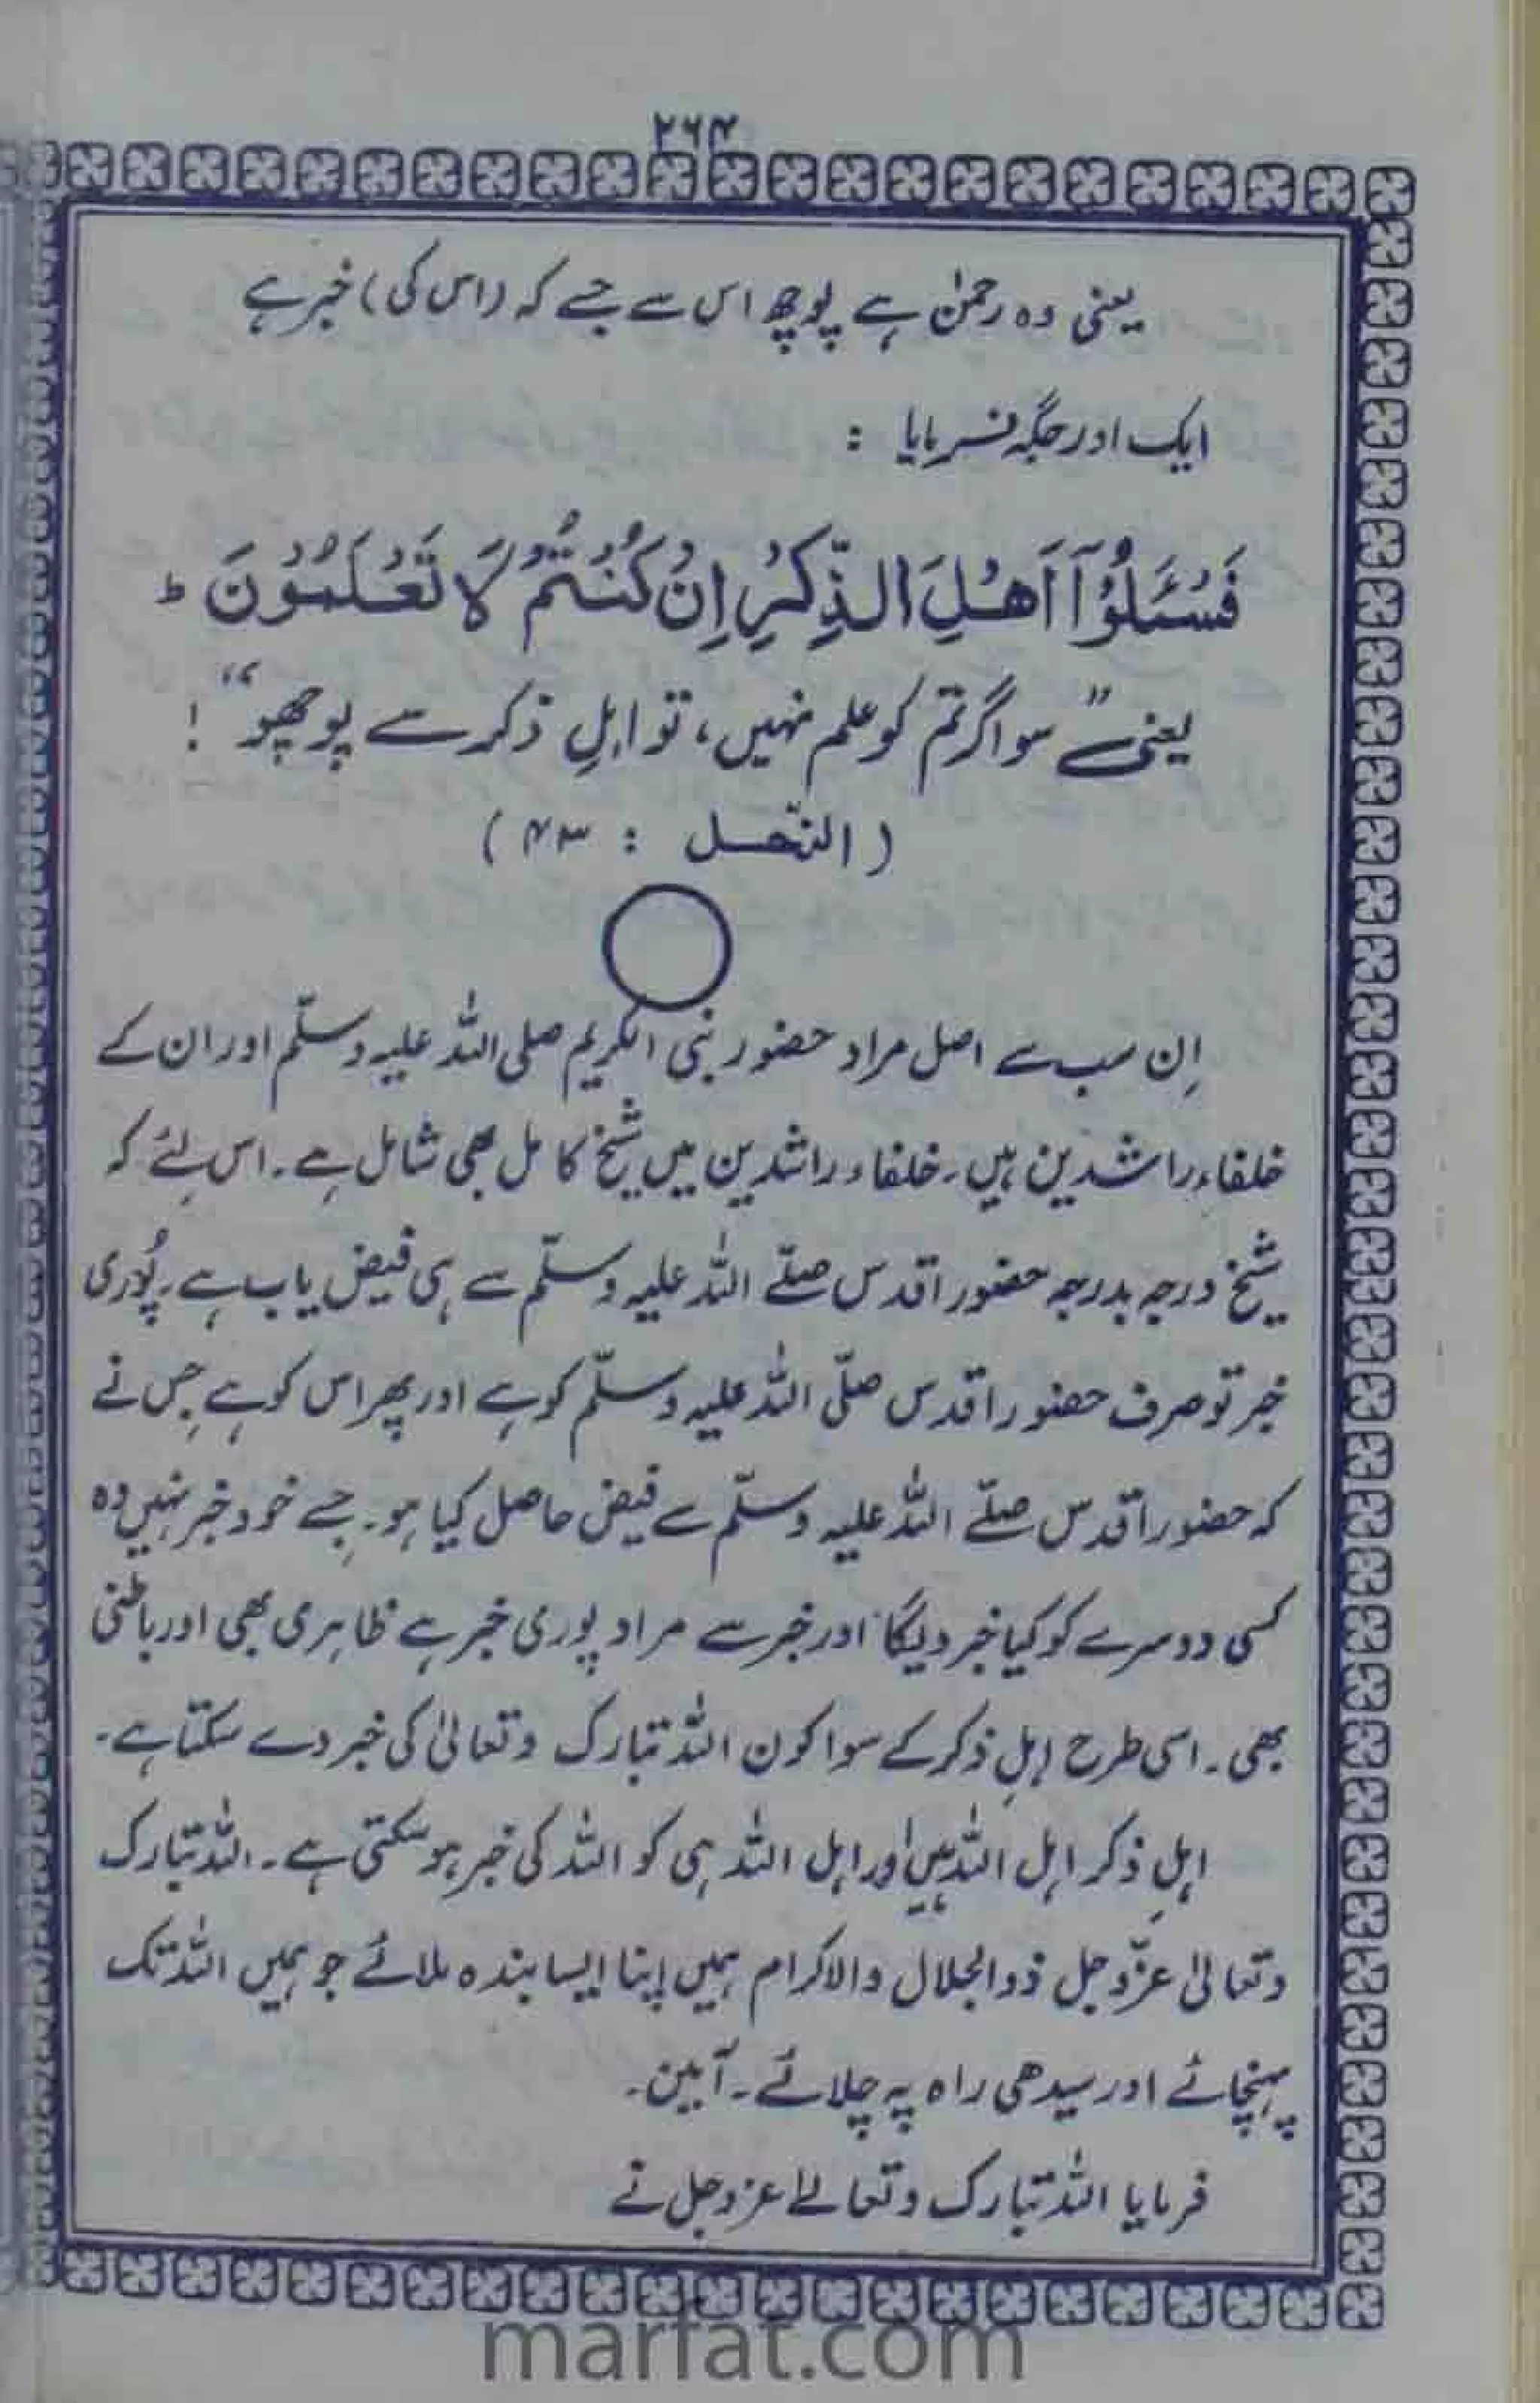 ۲۶۴
یعنی وہ رحمٰن ہے پوچھ اس سے جسے کہ (اس کی) خبر ہے
ایک اور جگہ فرمایا :
فَسْئَلُوْٓا اَهْلَ الذِّكْرِ اِنْ كُنْتُمْ لَا تَعْلَمُوْنَ ط
یعنی "سو اگر تم کو علم نہیں، تو اہلِ ذکر سے پوچھو" !
( النّحل : ۴۳ )
اِن سب سے اصل مراد حضور نبی الکریم صلی اللہ علیہ وسلّم اور ان کے
خلفاء راشدین ہیں۔ خلفاء راشدین میں شیخ کامل بھی شامل ہے۔ اس لئے کہ
شیخ درجہ بدرجہ حضور اقدس صلّے اللہ علیہ وسلّم سے ہی فیض یاب ہے۔ پُوری
خبر تو صرف حضور اقدس صلّی اللہ علیہ وسلّم کو ہے اور پھر اس کو ہے جِس نے
کہ حضور اقدس صلّے اللہ علیہ وسلّم سے فیض حاصل کیا ہو۔ جِسے خود خبر نہیں وہ
کسی دوسرے کو کیا خبر دیگا اور خبر سے مراد پوری خبر ہے ظاہری بھی اور باطنی
بھی۔ اسی طرح اہلِ ذکر کے سوا کون اللہ تبارک وتعالیٰ کی خبر دے سکتا ہے۔
اہلِ ذکر اہل اللہ ہیں اور اہل اللہ ہی کو اللہ کی خبر ہو سکتی ہے۔ اللہ تبارک
وتعالیٰ عزّوجل ذوالجلال والاکرام ہمیں اپنا ایسا بندہ ملائے جو ہمیں اللہ تک
پہنچائے اور سیدھی راہ پہ چلائے۔ آمین۔
فرمایا اللہ تبارک وتعالےٰ عزوجل نے
marfat.com